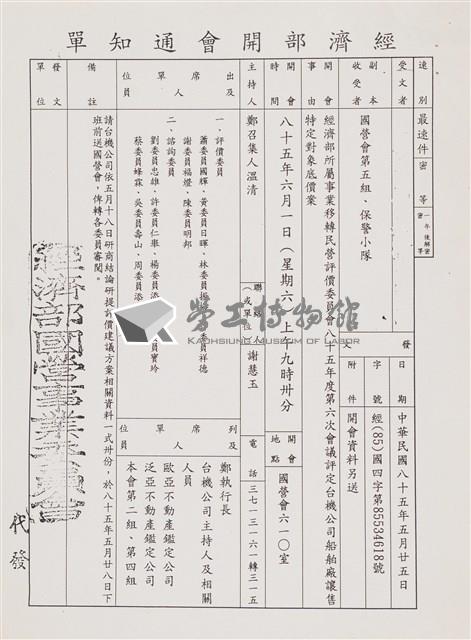 經濟部開會通知單
速別 最速件
密等
一年後解密
受文者
副本收受者 國營會第五組、保警小隊
發文
日期 中華民國八十五年五月廿五日
字號 經(85)國四字第85534618號
附件 開會資料另送
開會事由 經濟部所屬事業移轉民營評價委員會八十五年度第六次會議評定台機公司船舶廠讓售特定對象底價案
開會時間 八十五年六月一日(星期六)上午九時卅分
開會地點 國營會六一〇室
主持人 鄭召集人溫清
聯絡人(或單位) 謝慧玉
電話 三七一三一六一轉三一五
出席單位及人員
一、評價委員
蕭委員國輝、黃委員日暉、林委員 委員祥德
謝委員福燈、陳委員明邦
二、諮詢委員
劉委員忠雄、許委員仁舉、楊委員添 員寶玲
蔡委員蜂霖、吳委員壽山、周委員添
列席單位及人員
鄭執行長
台機公司主持人及相關人員
歐亞不動產鑑定公司
泛亞不動產鑑定公司
本會第二組、第四組
備註
請台機公司依五月十八日研商結論研提訂價建議方案相關資料一式卅份,於八十五年五月廿八日下班前送國營會,俾轉各委員審閱。
發文單位
經濟部國營事業委員會
代發
勞工博物館
KAOHSIUNG MUSEUM OF LABOR